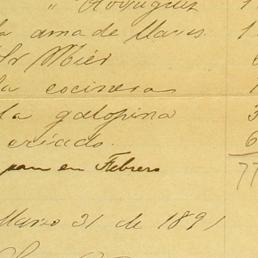 " Rodriguez 1
la ama de llaves 1
Sr Mier
la cocinera 1
la galopina 3
criado. 6
pan en Febrero 77
Marzo 31 de 1891